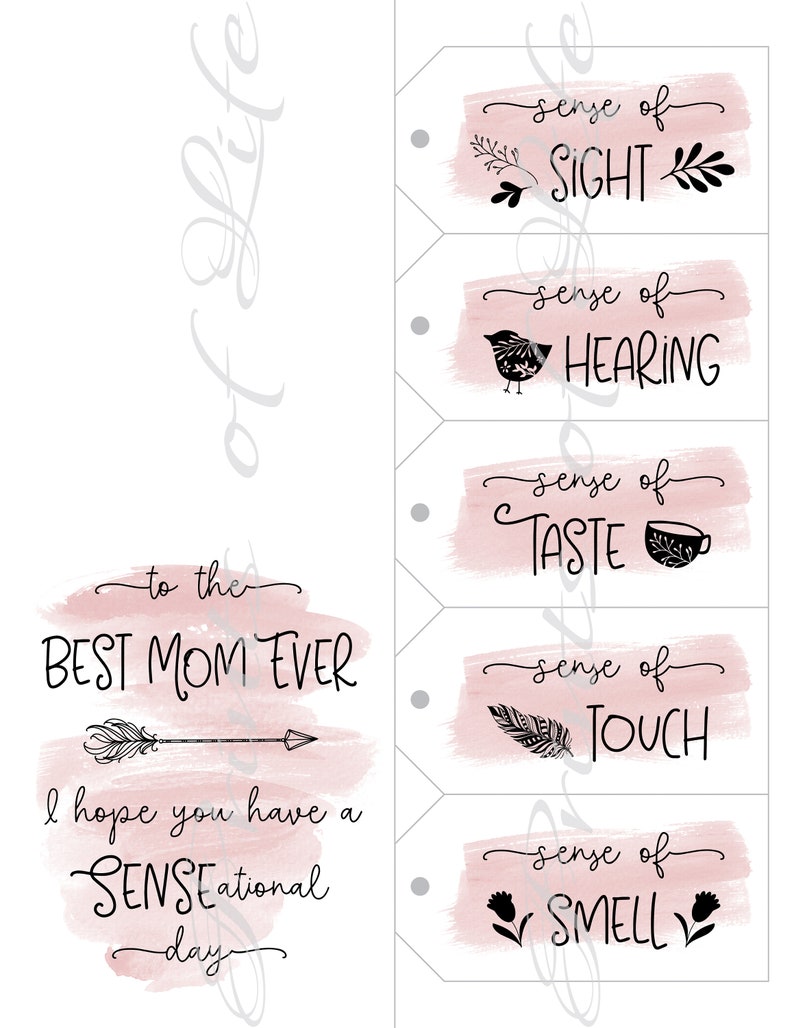 to the
BEST MOM EVER
I hope you have a
SENSEational
day
sense of
SiGHT
sense of
HEARiNG
sense of
TASTE
sense of
TOUCH
sense of
SMELL
Prints of Life
Prints of Life